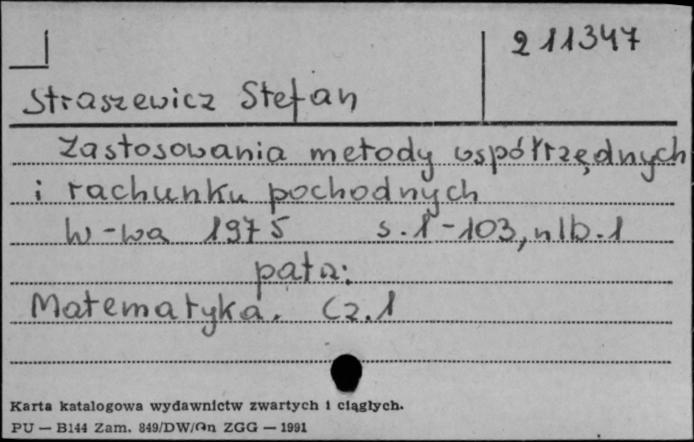 211347
Straszewicz Stefan
Zastosowania metody współrzędnych
i rachunku pochodnych
W-wa 1975 s.1-103, nlb.1
patrz:
Matematyka. Cz.1
Karta katalogowa wydawnictw zwartych i ciągłych.
PU — B144 Zam. 849/DW/Qn ZGG — 1991